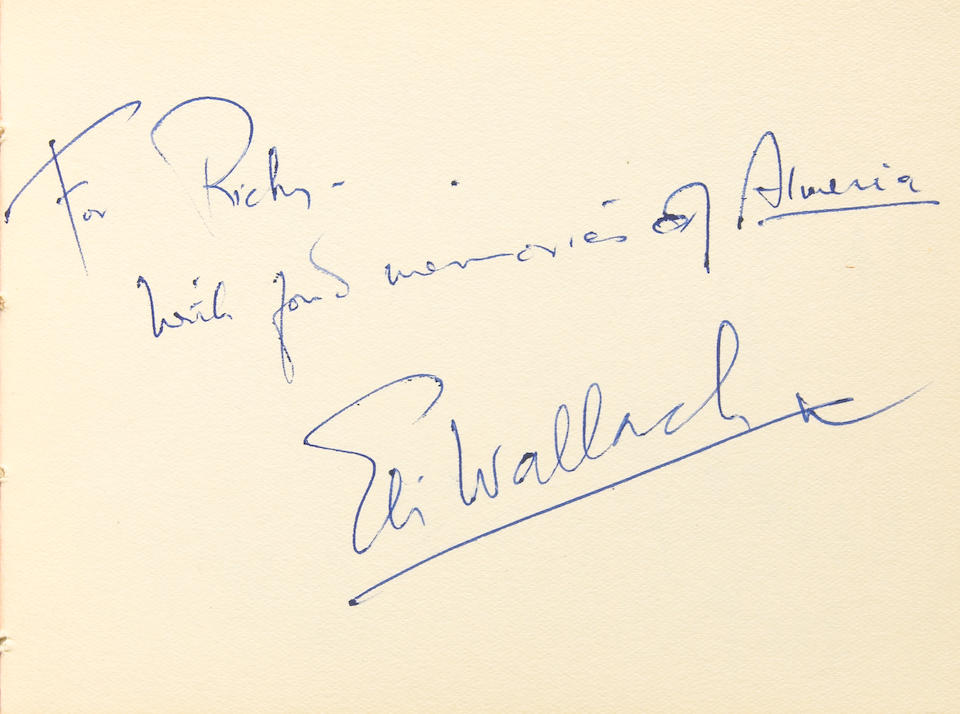 For Ricky -
With fond memories of Almeria
Eli Wallach